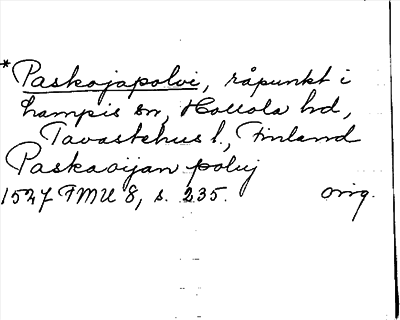 *Paskojapolvi, råpunkt i
Lampis sn, Hollola hd,
Tavastehus l., Finland
Paskaoijan poluj
1527 FMU 8, s. 235. orig.